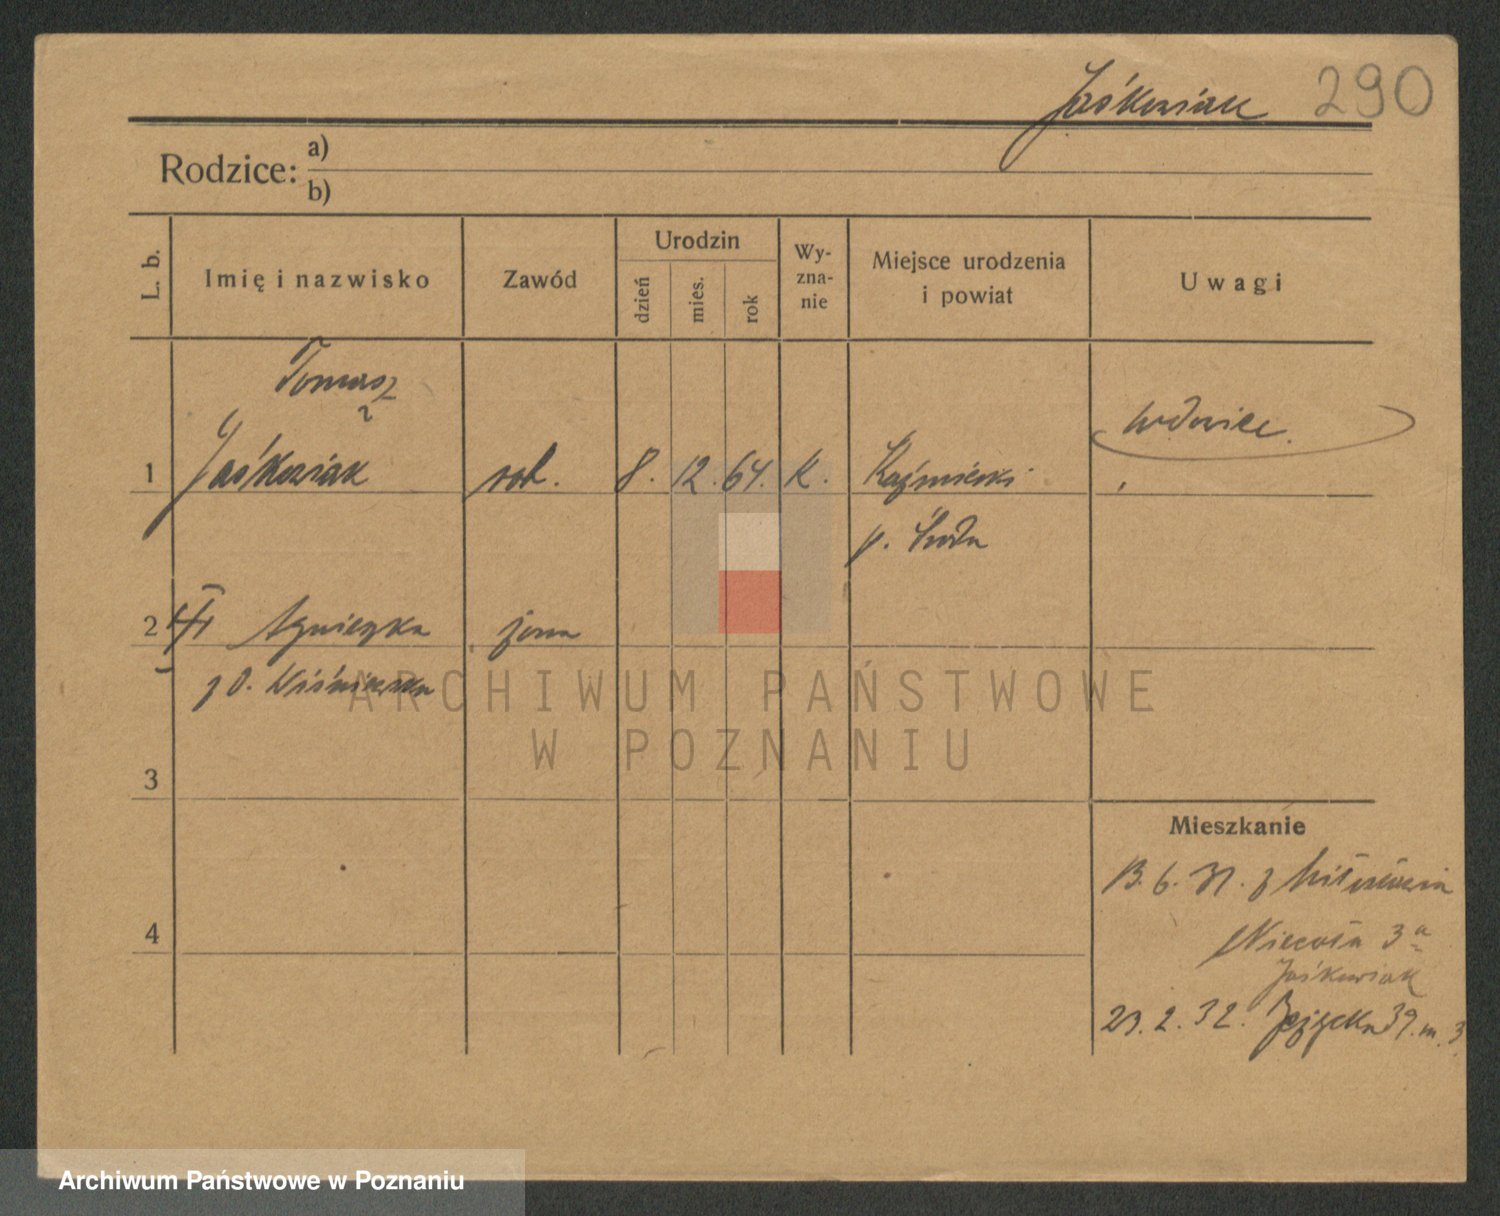 Jaśkowiak 290
Rodzice: a)
b)
L. b.
Imię i nazwisko
Zawód
Urodzin
dzień
mies.
rok
Wy-
zna-
nie
Miejsce urodzenia
i powiat
Uwagi
Tomasz
wdowiec.
1 Jaśkowiak rob. 8. 12. 64. k. Kaźmierki
p. Środa
2 Agnieszka żona
z d. Wiśniewska
ARCHIWUM PAŃSTWOWE
W POZNANIU
3
Mieszkanie
13. 6. 31. z
4
3a
Jaśkowiak
23. 2. 32. 39. m. 3
Archiwum Państwowe w Poznaniu